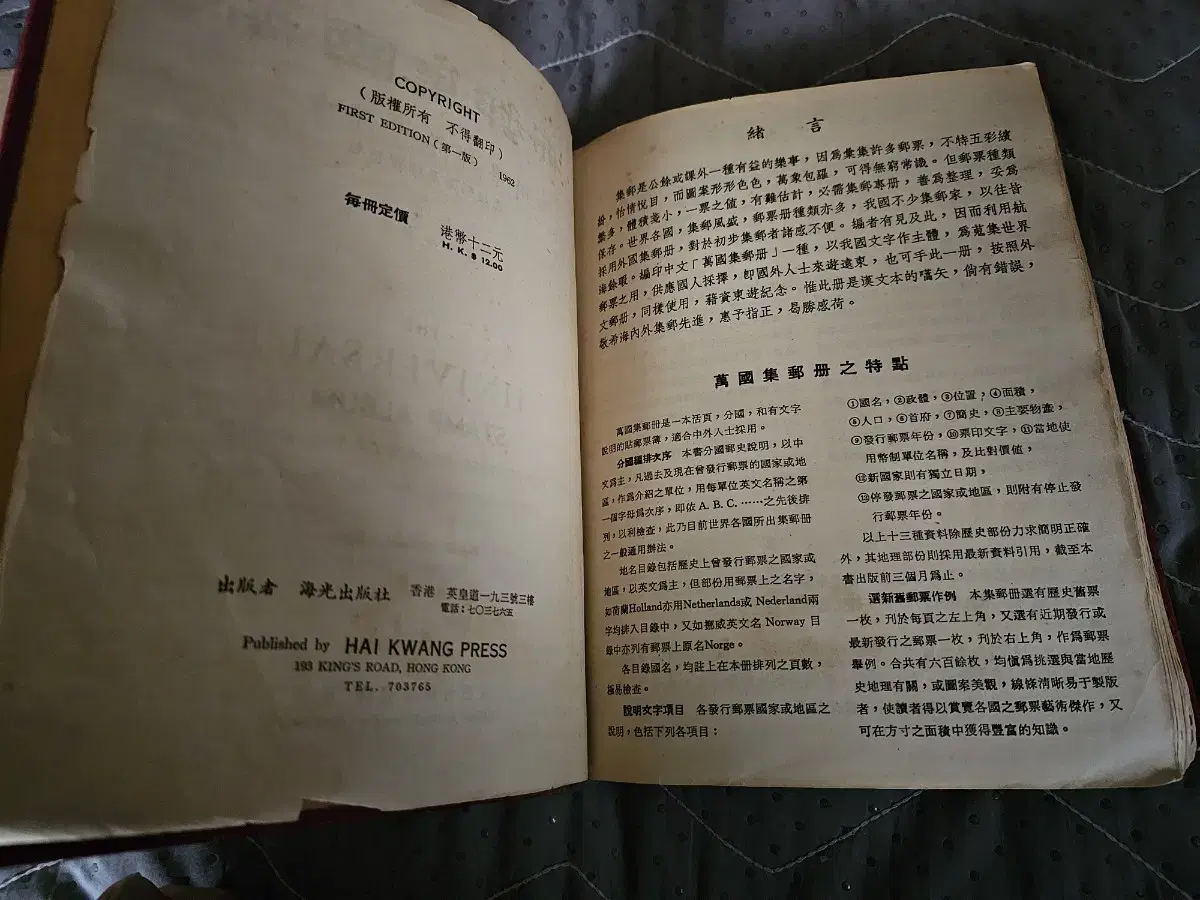 COPYRIGHT
(版權所有 不得翻印)
FIRST EDITION (第一版) 1962
每冊定價 港幣十二元
H. K. $ 12.00
出版者 海光出版社 香港 英皇道一九三號三樓
電話:七〇三七六五
Published by HAI KWANG PRESS
193 KING'S ROAD, HONG KONG
TEL. 703765
緒言
集郵是公餘或課外一種有益的樂事,因爲彙集許多郵票,不特五彩繽
紛,怡情悅目,而圖案形形色色,萬象包羅,可得無窮常識。但郵票種類
繁多,體積淺小,一票之值,有難估計,必需集郵專册,善爲整理,妥爲
保存。世界各國,集郵風盛,郵票册種類亦多,我國不少集郵家,以往皆
採用外國集郵册,對於初步集郵者諸感不便。編者有見及此,因而利用航
海餘暇。編印中文「萬國集郵册」一種,以我國文字作主體,爲蒐集世界
郵票之用,供應國人採擇,卽國外人士來遊遠東,也可手此一册,按照外
文郵册,同樣使用,藉資東遊紀念。惟此册是漢文本的嚆矢,倘有錯誤,
敬希海內外集郵先進,惠予指正,曷勝感荷。
萬國集郵册之特點
萬國集郵册是一本活頁,分國,和有文字
說明的貼郵票簿,適合中外人士採用。
分國編排次序 本書分國郵史說明,以中
文爲主,凡過去及現在曾發行郵票的國家或地
區,作爲介紹之單位,用每單位英文名稱之第
一個字母爲次序,卽依 A. B. C. ……之先後排
列,以利檢查,此乃目前世界各國所出集郵册
之一般通用辦法。
地名目錄包括歷史上曾發行郵票之國家或
地區,以英文爲主,但部份用郵票上之名字,
如荷蘭Holland亦用Netherlands或 Nederland兩
字均排入目錄中,又如挪威英文名 Norway 目
錄中亦列有郵票上原名Norge。
各目錄國名,均註上在本册排列之頁數,
極易檢查。
說明文字項目 各發行郵票國家或地區之
說明,包括下列各項目:
①國名,②政體,③位置,④面積,
⑤人口,⑥首府,⑦簡史,⑧主要物產,
⑨發行郵票年份,⑩票印文字,⑪當地使
用幣制單位名稱,及比對價值,
⑫新國家則有獨立日期,
⑬停發郵票之國家或地區,則附有停止發
行郵票年份。
以上十三種資料除歷史部份力求簡明正確
外,其地理部份則採用最新資料引用,截至本
書出版前三個月爲止。
選新舊郵票作例 本集郵册選有歷史舊票
一枚,刋於每頁之左上角,又選有近期發行或
最新發行之郵票一枚,刋於右上角,作爲郵票
舉例。合共有六百餘枚,均愼爲挑選與當地歷
史地理有關,或圖案美觀,線條淸晰易于製版
者,使讀者得以賞覽各國之郵票藝術傑作,又
可在方寸之面積中獲得豐富的知識。